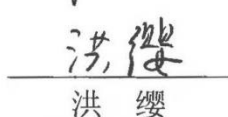 洪缨
洪 缨